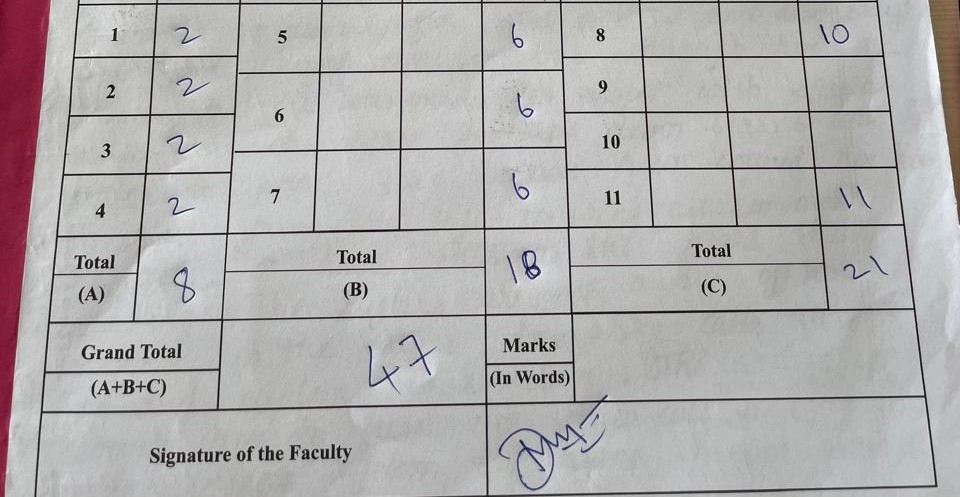 1 2 5 6 8 10
2 2 6 6 9
3 2 10
4 2 7 6 11 11
Total (A) 8 Total (B) 18 Total (C) 21
Grand Total (A+B+C) 47 Marks (In Words)
Signature of the Faculty